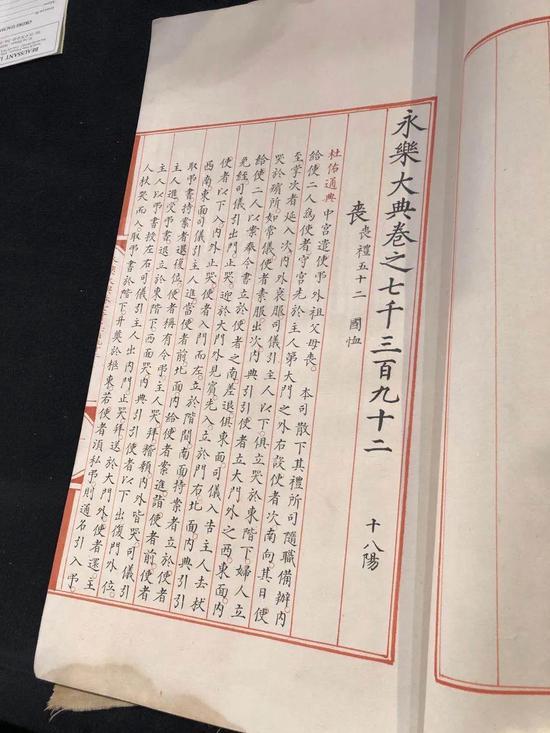 永樂大典卷之七千三百九十二 十八陽
喪 喪禮五十二 國恤
杜佑通典 中宮遣使弔外祖父母喪。 本司散下其禮所司隨職備辦内
給使二人為使者守宮先於主人第大門之外右設使者次南向其日使
至掌次者延入次内外衰服司儀引主人以下俱立哭於東階下婦人立
哭於殯所如常儀使者素服出次内典引引使者立大門外之西東面内
給使二人以案奉令書立於使者之南差退俱東面司儀入告主人去杖
免絰司儀引出門止哭迎於大門外見賓先入立於門右北面内典引引
使者以下入内外止哭使者入門而左立於階間南面持案者立於使者
西南東面司儀引主人進當使者前北面内給使者案進詣使者前使者
取弔書持案者退復位使者稱有令弔主人哭拜稽顙内外皆哭司儀引
主人進受弔書退立於東階下西面哭内典引引使者以下出復門外位
主人以弔書授左右司儀引主人出内門止哭拜送於大門外使者還主
人杖哭而入取弔書於階下升奠於柩東若使者須私弔則通名引入弔
BEAUSSANT